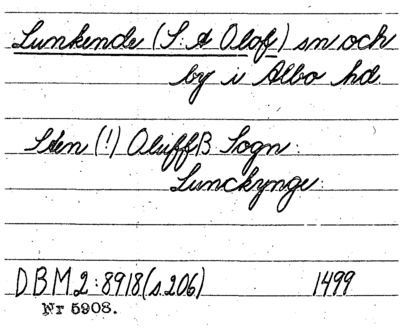 Lunkende (S:t Olof) sn och
by i Albo hd.
Sten (!) Oluffß Sogn:
Lunckynge:
DBM2:8918 (s.206) 1499
Nr 5908.